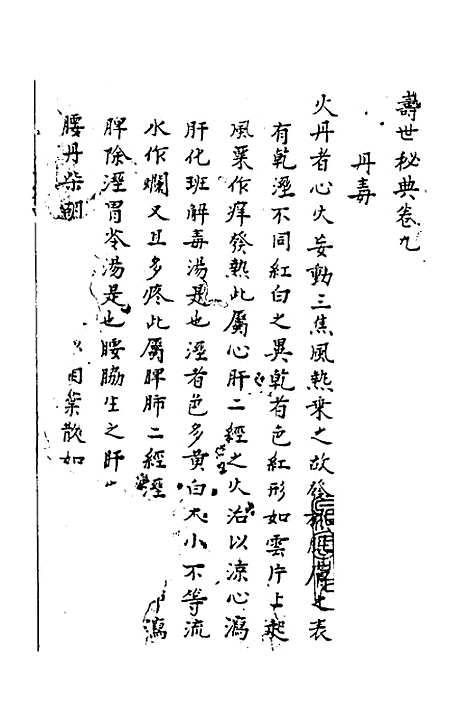 壽世秘典卷九
丹毒
火丹者心火妄動三焦風熱乗之故發於肌膚之表
有乾溼不同紅白之異乾者色紅形如雲片上起
風粟作痒發熱此屬心肝二經之火治以涼心瀉
肝化班解毒湯是也溼者色多黄白大小不等流
水作爛又且多疼此屬脾肺二經溼
瀉
脾除溼胃苓湯是也腰脇生之肝
腰丹柴胡
因柒散如